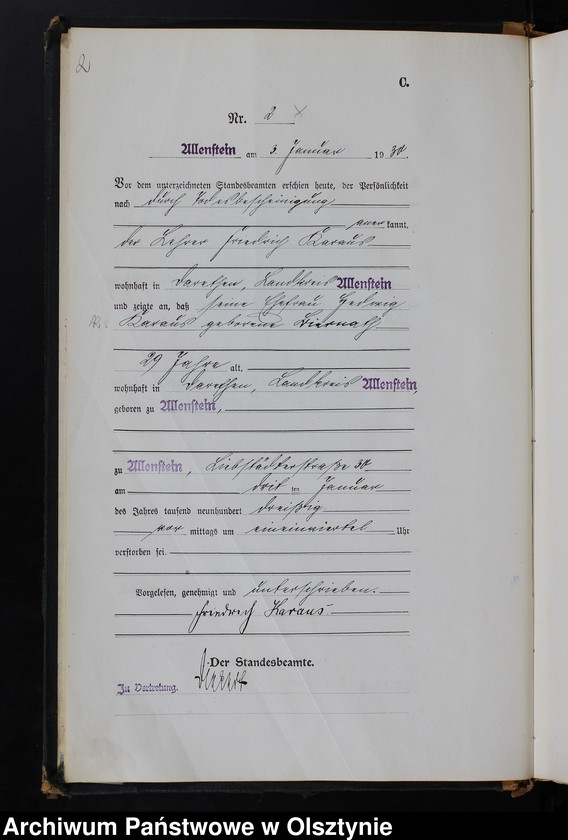 2
C.
Nr. 2
Allenstein am 3. Januar 1930.
Vor dem unterzeichneten Standesbeamten erschien heute, der Persönlichkeit
nach durch Todesbescheinigung
anerkannt,
der Lehrer Friedrich Karaus
wohnhaft in Darethen, Landkreis Allenstein
und zeigte an, daß seine Ehefrau Hedwig
Karaus geborene Biernath
29 Jahre alt,
wohnhaft in Darethen, Landkreis Allenstein,
geboren zu Allenstein,
zu Allenstein, Liebstädterstraße 30
am dritten Januar
des Jahres tausend neunhundert dreißig
vor mittags um eineinviertel Uhr
verstorben sei.
Vorgelesen, genehmigt und unterschrieben.
Friedrich Karaus
Der Standesbeamte.
In Vertretung.
Archiwum Państwowe w Olsztynie